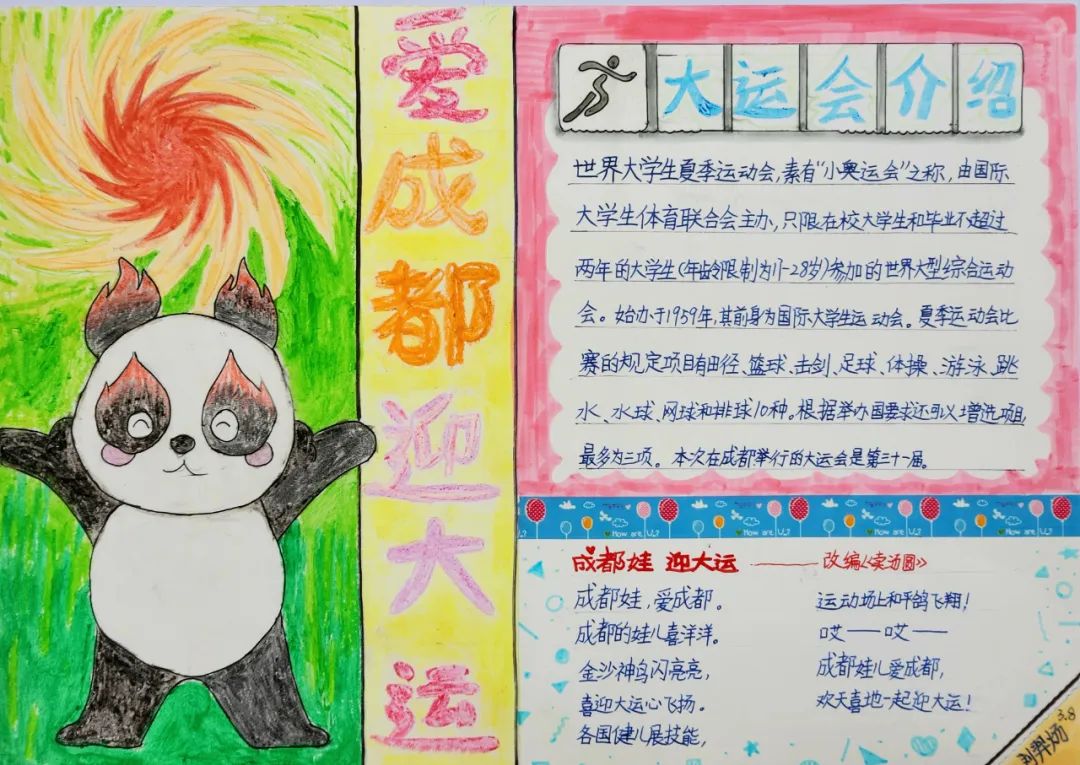 爱成都迎大运
大运会介绍
世界大学生夏季运动会,素有“小奥运会”之称,由国际
大学生体育联合会主办,只限在校大学生和毕业不超过
两年的大学生(年龄限制为17-28岁)参加的世界大型综合运动
会。始办于1959年,其前身为国际大学生运动会。夏季运动会比
赛的规定项目有田径、篮球、击剑、足球、体操、游泳、跳
水、水球、网球和排球10种。根据举办国要求还可以增选项目,
最多为三项。本次在成都举行的大运会是第三十一届。
How are U?
How are U?
How are U?
成都娃 迎大运 ——— 改编《卖汤圆》
成都娃,爱成都。
成都的娃儿喜洋洋。
金沙神鸟闪亮亮,
喜迎大运心飞扬。
各国健儿展技能,
运动场上和平鸽飞翔!
哎——哎——
成都娃儿爱成都,
欢天喜地一起迎大运!
3.8